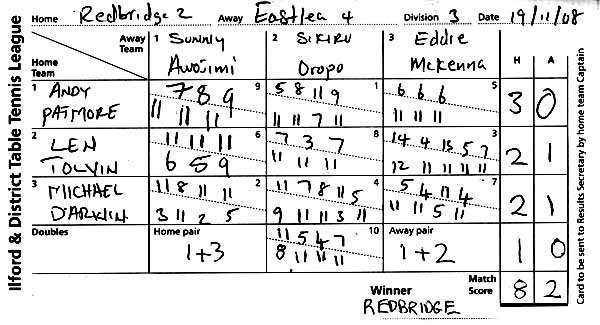 Ilford & District Table Tennis League
Home Redbridge 2 Away Eastlea 4 Division 3 Date 19/11/08
Away Team 1 SUNNY 2 SIKIRU 3 Eddie H A
Home Team Awojimi Oropo McKenna
1 ANDY 7 8 9 9 5 8 11 9 1 6 6 6 5 3 0
PATMORE 11 11 11 11 11 7 11 11 11 11
2 LEN 11 11 11 6 7 3 7 8 14 4 5 7 3 2 1
TOLVIN 6 5 9 11 11 11 12 11 11 11 11
3 MICHAEL 11 8 11 11 2 11 7 8 11 5 4 5 4 11 4 7 2 1
3 11 2 5 9 11 11 3 11 11 11 5 11
Doubles Home pair 11 5 4 7 10 Away pair 1 0
1+3 8 11 11 11 1+2
Winner Match Score 8 2
REDBRIDGE
Card to be sent to Results Secretary by home team Captain